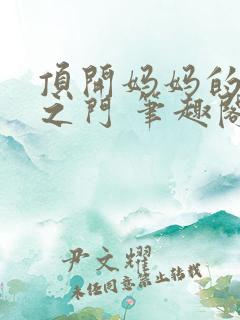 頂開妈妈的
之门 筆趣阁
尹文耀
未经同意禁止转载